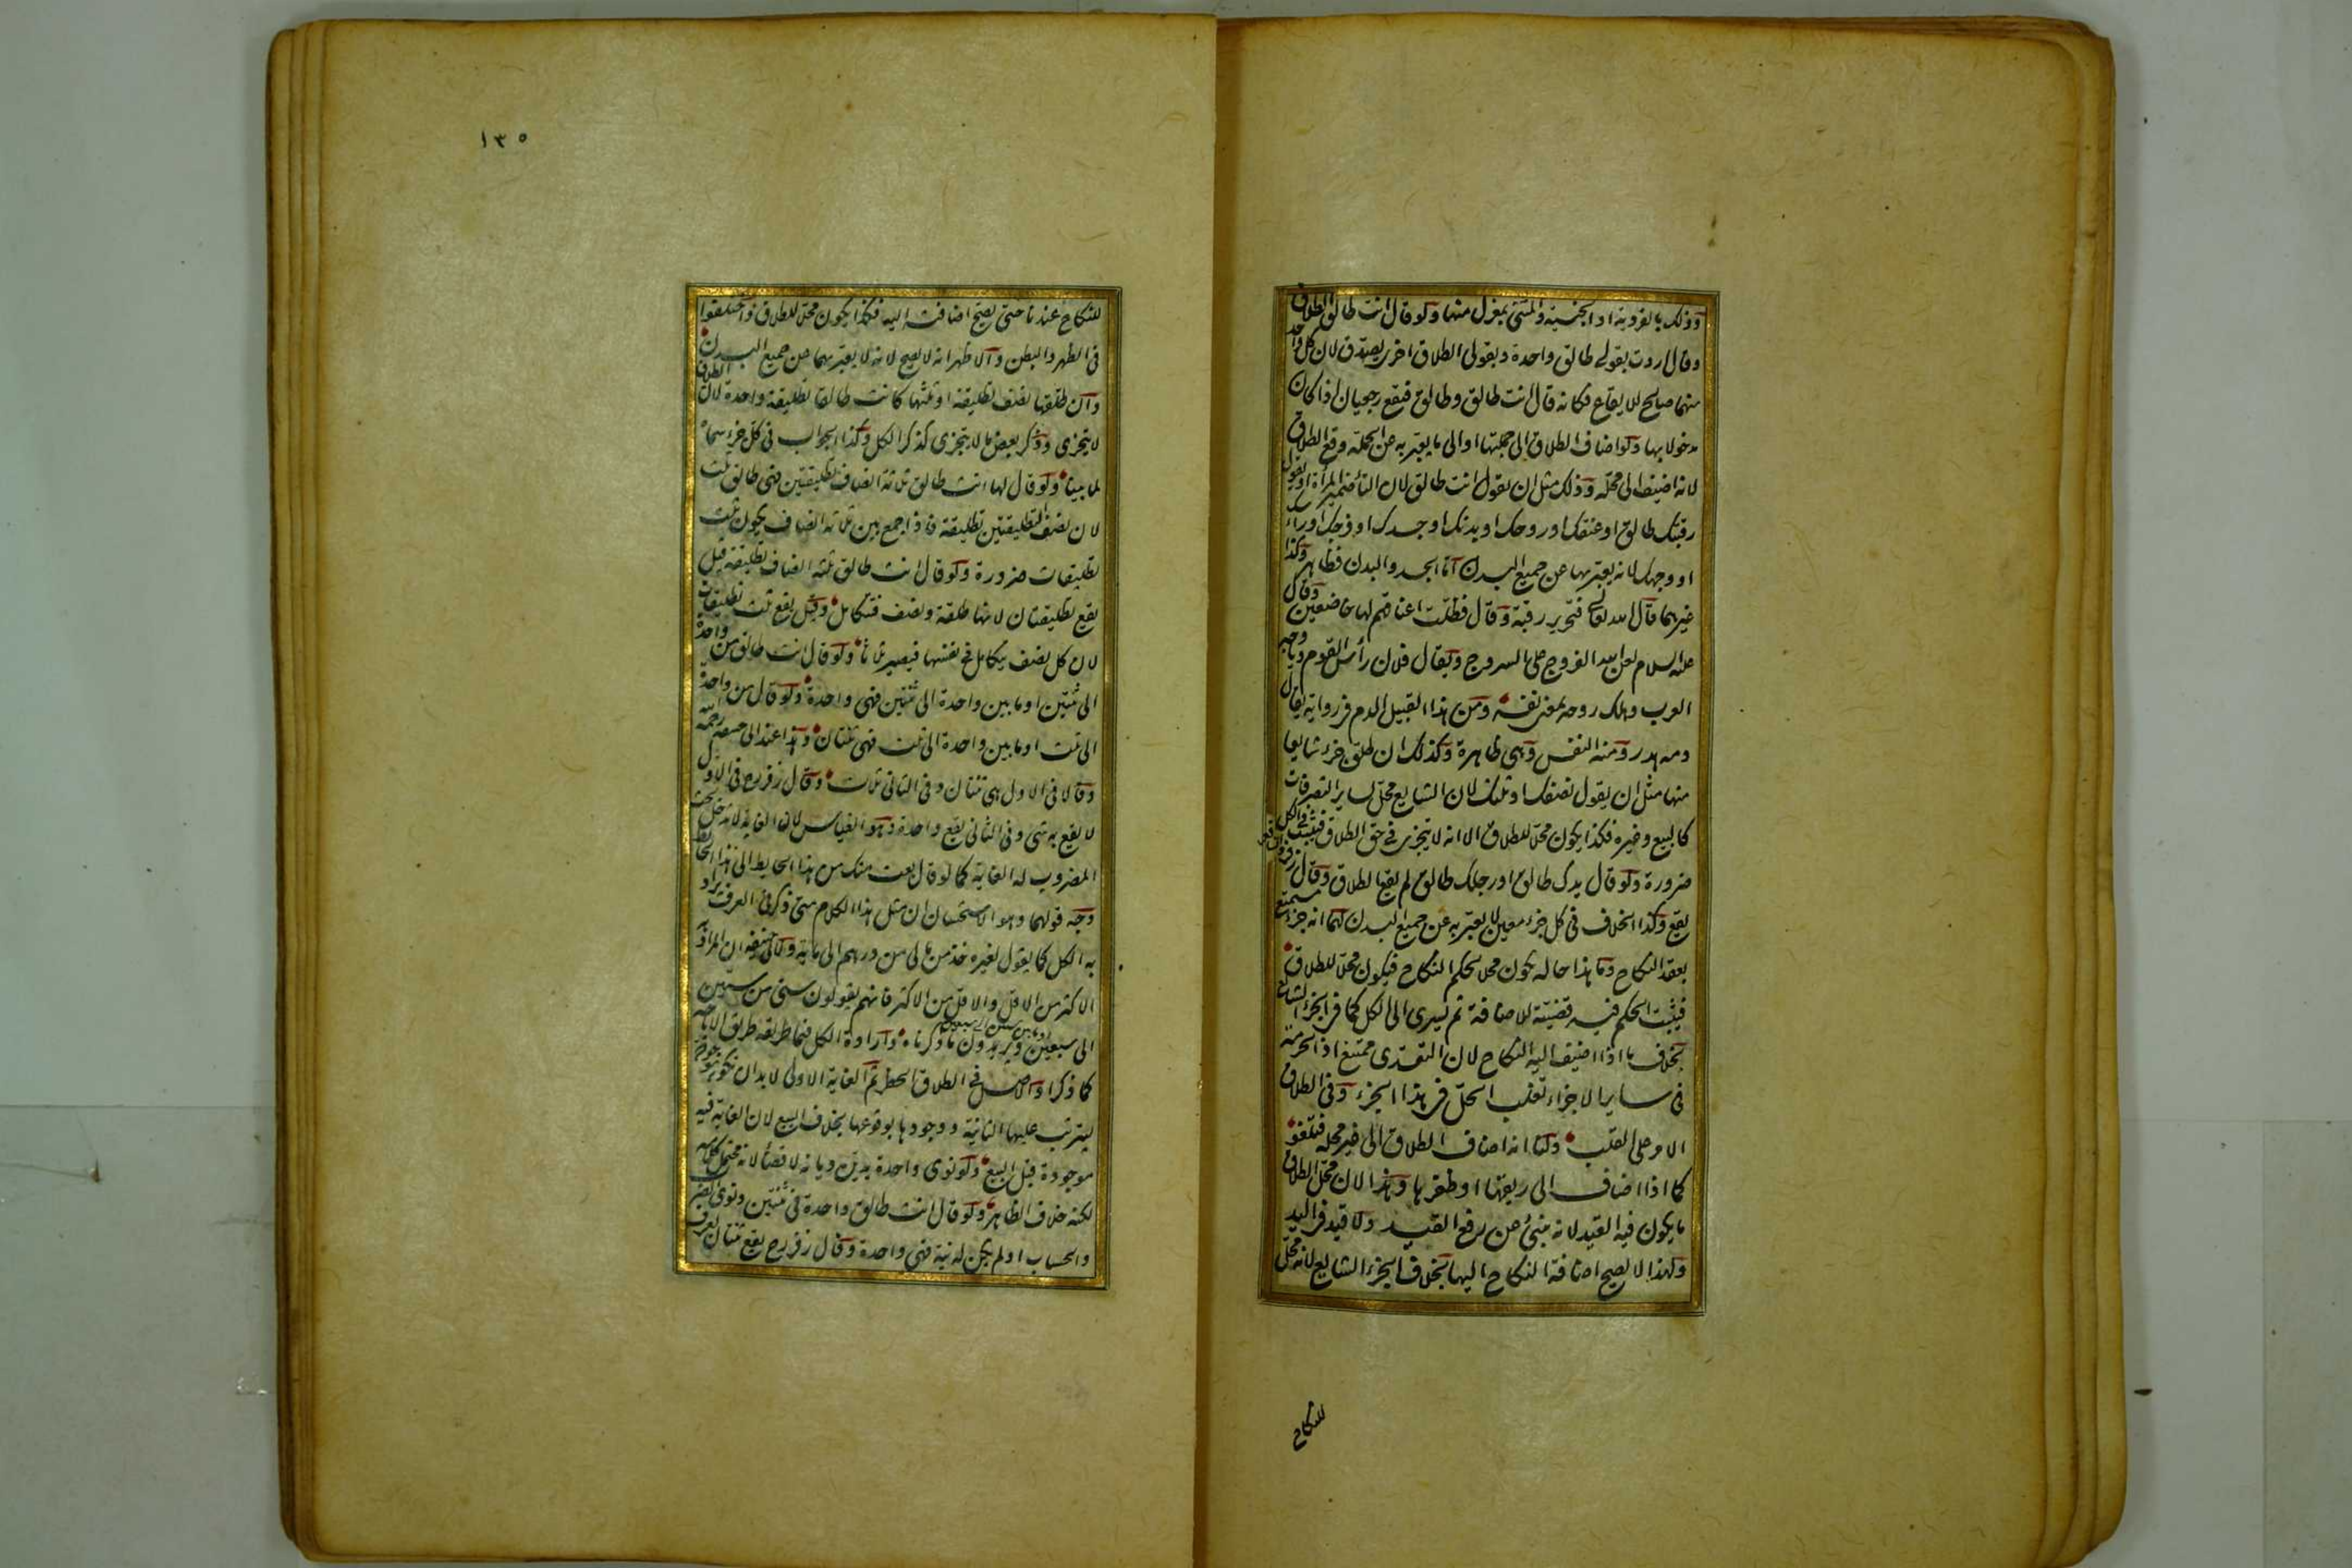 وذلك بالفردية او الجنسية والمثنى بمعزل منها ولو قال انت طالق الطلاق
وقال اردت بقولي طالق واحدة وبقولي الطلاق اخرى يصدق لان كل واحد
منهما صالح للايقاع فكانه قال انت طالق وطالق فيقع رجعيان اذا كان
مدخولا بها ولو اضاف الطلاق الى جملتها او الى ما يعبر به عن الجملة وقع الطلاق
لانه اضيف الى محله وذلك مثل ان يقول انت طالق لان التاء ضمير المرأة او يقول
رقبتك طالق او عنقك او روحك او بدنك او جسدك او فرجك او رأسك
او وجهك لانه يعبر بها عن جميع البدن اما الجسد والبدن فظاهر وكذا
غيرهما قال الله تعالى فتحرير رقبة وقال فظلت اعناقهم لها خاضعين وقال
عليه السلام لعن الله الفروج على السروج ويقال فلان رأس القوم ويا وجه
العرب وهلك روحه بمعنى نفسه ومن هذا القبيل الدم في رواية يقال
دمه هدر ومنه النفس وهي ظاهرة وكذلك ان طلق جزء شايعا
منها مثل ان يقول نصفك او ثلثك لان الشايع محل لساير التصرفات
كالبيع وغيره فكذا يكون محلا للطلاق الا انه لا يتجزى في حق الطلاق فيثبت في الكل
ضرورة ولو قال يدك طالق او رجلك طالق لم يقع الطلاق وقال زفر والشافعي
يقع وكذا الخلاف في كل جزء معين لا يعبر به عن جميع البدن لهما انه جزء مستمتع
بعقد النكاح وما هذا حاله يكون محلا لحكم النكاح فيكون محلا للطلاق
فيثبت الحكم فيه قضية للاضافة ثم يسرى الى الكل كما في الجزء الشايع
بخلاف ما اذا اضيف اليه النكاح لان التعدى ممتنع اذ الحرمة
في ساير الاجزاء تغلب الحل في هذا الجزء وفي الطلاق
الامر على القلب ولنا انه اضاف الطلاق الى غير محله فيلغو
كما اذا اضاف الى ريقها او ظفرها وهذا لان محل الطلاق
ما يكون فيه القيد لانه ينبئ عن رفع القيد ولا قيد في اليد
ولهذا لا يصح اضافة النكاح اليها بخلاف الجزء الشايع لانه محل
للنكاح
١٣٥
للنكاح عندنا حتى يصح اضافته اليه فكذا يكون محلا للطلاق واختلفوا
في الظهر والبطن والاظهر انه لا يصح لانه لا يعبر بهما عن جميع البدن
وان طلقها نصف تطليقة او ثلثها كانت طالقا تطليقة واحدة لان الطلاق
لا يتجزى وذكر بعض ما لا يتجزى كذكر الكل وكذا الجواب في كل جزء سماه
لما بينا ولو قال لها انت طالق ثلاثة انصاف تطليقتين فهي طالق ثلث
لان نصف التطليقتين تطليقة فاذا جمع بين ثلاثة انصاف يكون ثلث
تطليقات ضرورة ولو قال انت طالق ثلثه انصاف تطليقة قيل
يقع تطليقتان لانها طلقة ونصف فتتكامل وقيل يقع ثلث تطليقات
لان كل نصف يتكامل في نفسها فيصير ثلاثا ولو قال انت طالق من واحدة
الى ثنتين او ما بين واحدة الى ثنتين فهي واحدة ولو قال من واحدة
الى ثلث او ما بين واحدة الى ثلث فهي ثنتان وهذا عند ابي حنيفة رحمه الله
وقالا في الاول هي ثنتان وفي الثاني ثلاث وقال زفر رح في الاول
لا يقع به شئ وفي الثاني يقع واحدة وهو القياس لان الغاية لا تدخل تحت
المضروب له الغاية كما لو قال بعت منك من هذا الحايط الى هذا الحايط
وجه قولهما وهو الاستحسان ان مثل هذا الكلام متى ذكر في العرف يراد
به الكل كما يقول لغيره خذ من مالي من درهم الى ماية ولابي حنيفة ان المراد به
الاكثر من الاقل والاقل من الاكثر فانهم يقولون سني من ستين
الى سبعين او ما بين ستين الى سبعين ويريدون ما ذكرناه وارادة الكل فيما طريقه طريق الاباحة
كما ذكرا والاصل في الطلاق الحظر ثم الغاية الاولى لا بد ان تكون موجودة
ليترتب عليها الثانية ووجودها بوقوعها بخلاف البيع لان الغاية فيه
موجودة قبل البيع ولو نوى واحدة يدين ديانة لا قضاء لانه محتمل كلامه
لكنه خلاف الظاهر ولو قال انت طالق واحدة في ثنتين ونوى الضرب
والحساب او لم يكن له نية فهي واحدة وقال زفر رح يقع ثنتان لعرف